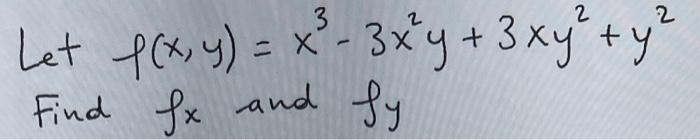 Let f(x,y) = x³ - 3x²y + 3xy² + y²
Find fx and fy